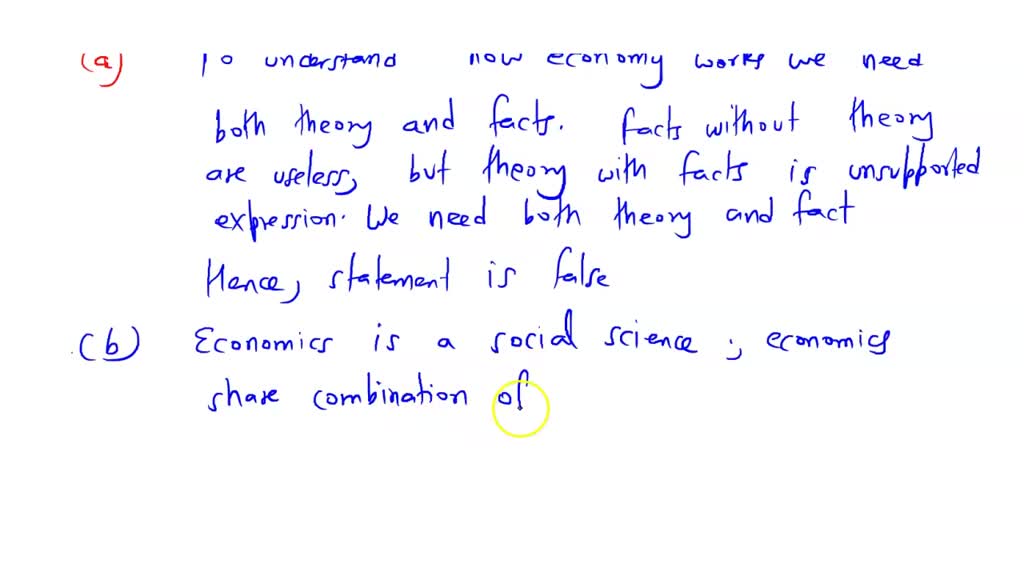 (a) To understand how economy works we need
both theory and facts. facts without theory
are useless, but theory with facts is unsupported
expression. We need both theory and fact
Hence, statement is false
(b) Economics is a social science, economics
share combination of